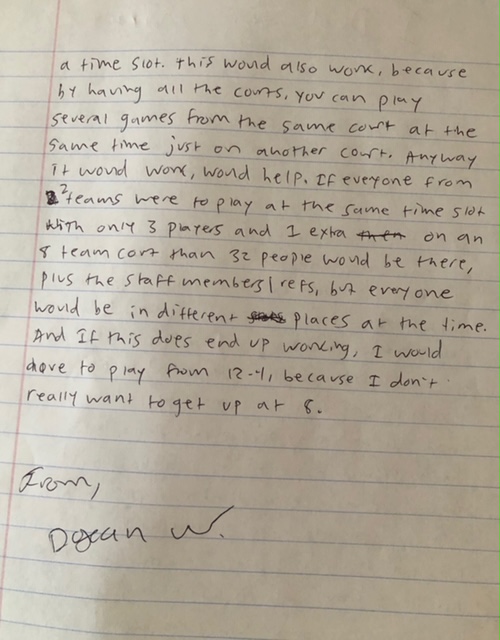 a time slot. this would also work, because
by having all the courts, you can play
several games from the same court at the
same time just on another court. Anyway
it would work, would help. If eveyone from
2 teams were to play at the same time slot
with only 3 players and 1 extra then on an
8 team cort than 32 people would be there,
plus the staff members/refs, but everyone
would be in different places at the time.
And If this does end up working, I would
have to play from 12-4, because I don't
really want to get up at 8.
From,
W.